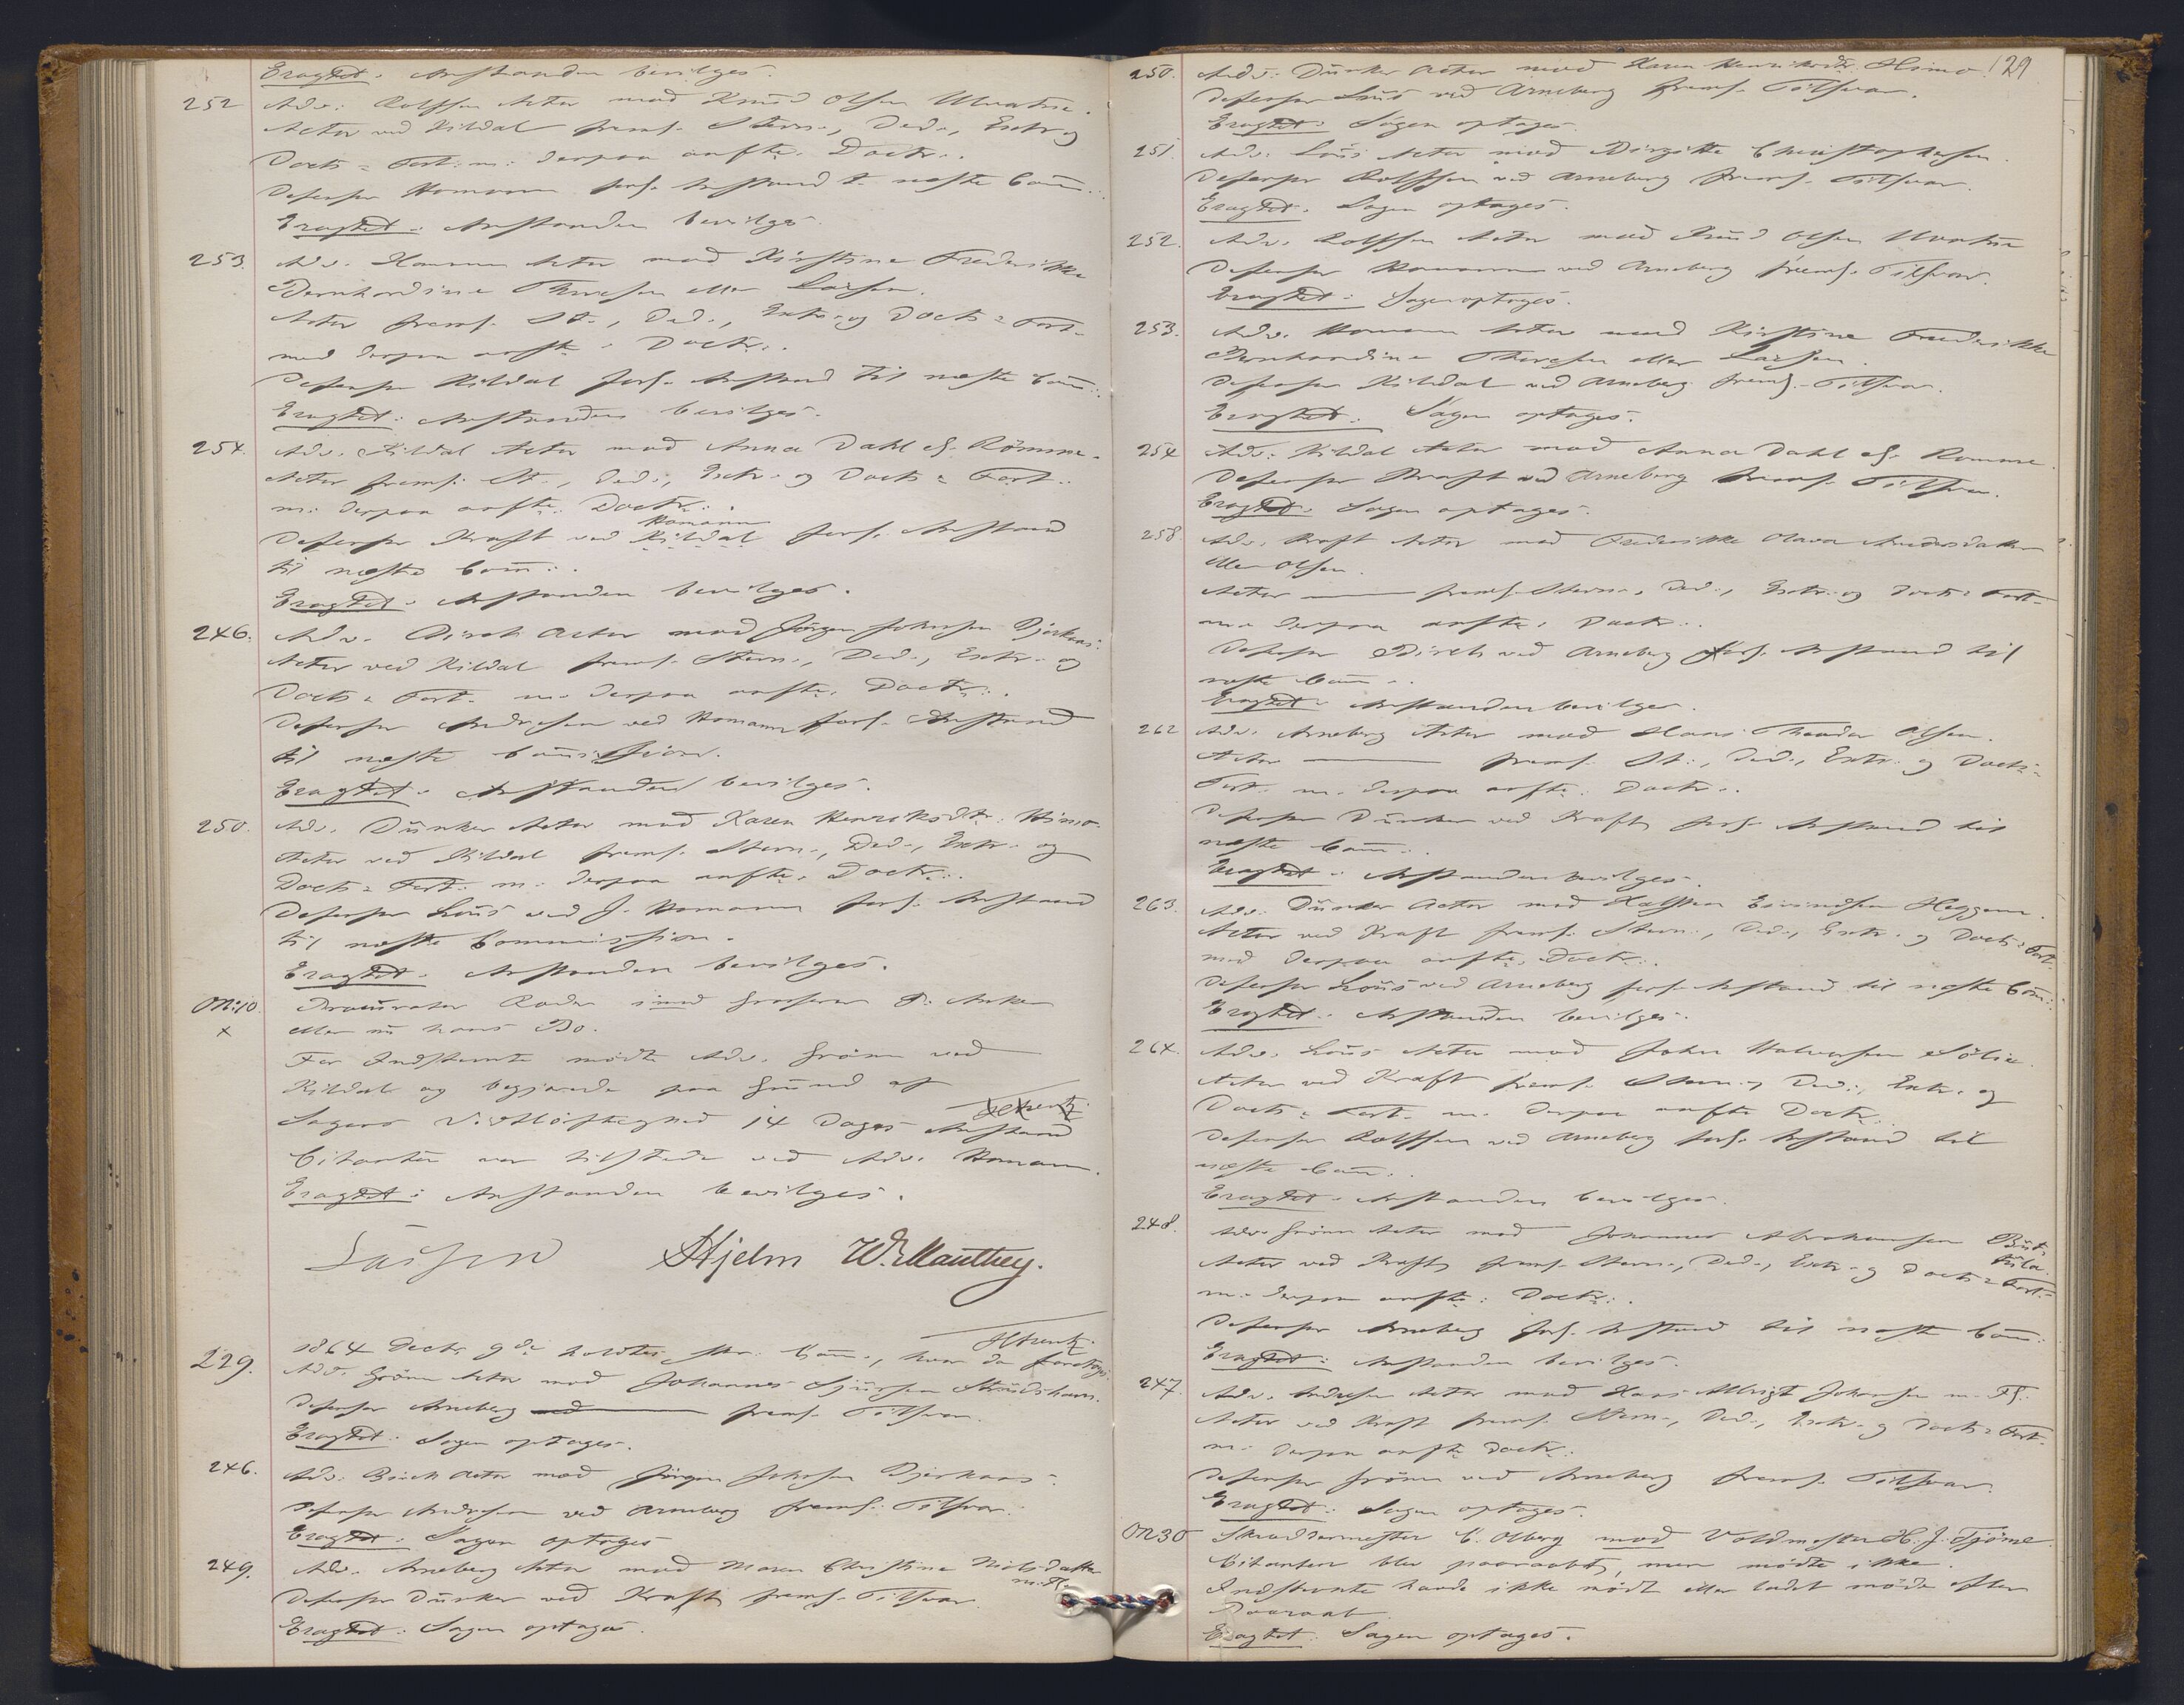 Eragtet: Anstanden bevilges.
252 Adv: Rolfsen Actor mod Knud Olsen
Actor ved Kildal frems. Stevn., Ded., Extr. og
Docts = Fort. m: derpaa anfte. Doctr.
Defensor Homann fors. Anstand t. næste Comm:
Eragtet: Anstanden bevilges.
253. Adv. Homann Actor mod Kirstine Fredrikke
Bernhardine Thoresen eller Larsen.
Actor frems. St., Ded., Extr. og Docts = Fort.
med derpaa anfte. Doctr.
Defensor Kildal fors. Anstand til næste Comm:
Eragtet: Anstanden bevilges.
254. Adv. Kildal Actor mod Anna Dahl el. Römme.
Actor frems. St., Ded., Extr. og Docts = Fort.
m: derpaa anfte. Doctr.
Homann
Defensor Kraft ved Kildal fors. Anstand
til næste Comm:
Eragtet: Anstanden bevilges.
246. Adv. Birch Actor mod Jörgen Johnsen Bjerkaas.
Actor ved Kildal frems. Stevn., Ded., Extr. og
Docts = Fort. m: derpaa anfte. Doctr.
Defensor Andresen ved Homann fors. Anstand
til næste Commission.
Eragtet: Anstanden bevilges.
250. Adv. Dunker Actor mod Karen Henriksdtr. Himo.
Actor ved Kildal frems. Stevn., Ded., Extr. og
Docts = Fort. m: derpaa anfte. Doctr.
Defensor Lous ved J. Homann fors. Anstand
til næste Commission.
Eragtet: Anstanden bevilges.
ON:10. Procurator Roder imod Grosserer P. Anker
x eller nu hans Bo.
For Indstevnte mödte Adv. Grönn ved
Kildal og begjærede paa Grund af
Sagens Vidtlöftighed 14 Dages Anstand
Citanten var tilstede ved Adv. Homann.
Eragtet: Anstanden bevilges.
Larsen Hjelm W. Manthey.
1864 Decbr 9de holdtes Comm:, hvor da foretoges:
229. Adv. Grönn Actor mod Johannes Sjursen
Defensor Arneberg ved frems. Tilsvar.
Eragtet: Sagen optages.
246. Adv: Birch Actor mod Jörgen Johnsen Bjerkaas.
Defensor Andresen ved Arneberg frems. Tilsvar.
Eragtet: Sagen optages
249. Adv. Arneberg Actor mod Maren Christine Nielsdatter
m. Fl.
Defensor Dunker ved Kraft frems. Tilsvar.
Eragtet: Sagen optages.
129
250. Adv: Dunker Actor mod Karen Henriksdtr. Himo.
Defensor Lous ved Arneberg frems. Tilsvar.
Eragtet: Sagen optages.
251. Adv. Lous Actor mod Birgitte Christophersen.
Defensor Rolfsen ved Arneberg frems. Tilsvar.
Eragtet: Sagen optages.
252. Adv. Rolfsen Actor mod Knud Olsen
Defensor Homann ved Arneberg frems. Tilsvar.
Eragtet: Sagen optages.
253. Adv. Homann Actor mod Kirstine Fredrikke
Bernhardine Thoresen eller Larsen.
Defensor Kildal ved Arneberg frems. Tilsvar.
Eragtet: Sagen optages.
254 Adv: Kildal Actor mod Anna Dahl el. Romme.
Defensor Kraft ved Arneberg frems. Tilsvar.
Eragtet: Sagen optages.
258. Adv. Kraft Actor mod Fredrikke Olava Andersdatter
eller Olsen.
Actor frems. Stevn., Ded., Extr. og Docts = Fort.
m: derpaa anfte. Doctr.
Defensor Birch ved Arneberg fors. Anstand til
næste Comm.
Eragtet: Anstanden bevilges.
262 Adv. Arneberg Actor mod Hans Theodor Olsen.
Actor frems. St., Ded., Extr. og Docts =
Fort. m: derpaa anfte. Doctr.
Defensor Dunker ved Kraft fors. Anstand til
næste Comm.
Eragtet: Anstanden bevilges.
263. Adv. Dunker Actor mod Halsten Eivindsen Heggen.
Actor ved Kraft frems. Stevn., Ded., Extr. og Docts = Fort.
med derpaa anfte. Doctr.
Defensor Lous ved Arneberg fors. Anstand til næste Comm:
Eragtet: Anstanden bevilges.
264. Adv. Lous Actor mod John Halvorsen Sölie.
Actor ved Kraft frems. Stevn., Ded., Extr. og
Docts = Fort. m. derpaa anfte Doctr.
Defensor Rolfsen ved Arneberg fors. Anstand til
næste Comm.
Eragtet: Anstanden bevilges.
248. Adv. Grönn Actor mod Johannes Abrahamsen
Actor ved Kraft frems. Stevn., Ded., Extr. og Docts = Fort.
m: derpaa anfte: Doctr.
Defensor Arneberg fors. Anstand til næste Comm:
Eragtet: Anstanden bevilges.
247. Adv. Andresen Actor mod Hans Albrigt Johansen m. Fl.
Actor ved Kraft frems. Stevn., Ded., Extr. og Docts = Fort.
m: derpaa anfte Doctr.
Defensor Grönn ved Arneberg frems. Tilsvar.
Eragtet: Sagen optages.
ON30 Skrædermester C. Olberg mod Voldmester H. J. Tjöme.
Citanten blev paaraabt, men mödte ikke.
Indstevnte havde ikke mödt eller ladet möde efter
Paaraab.
Eragtet: Sagen optages.